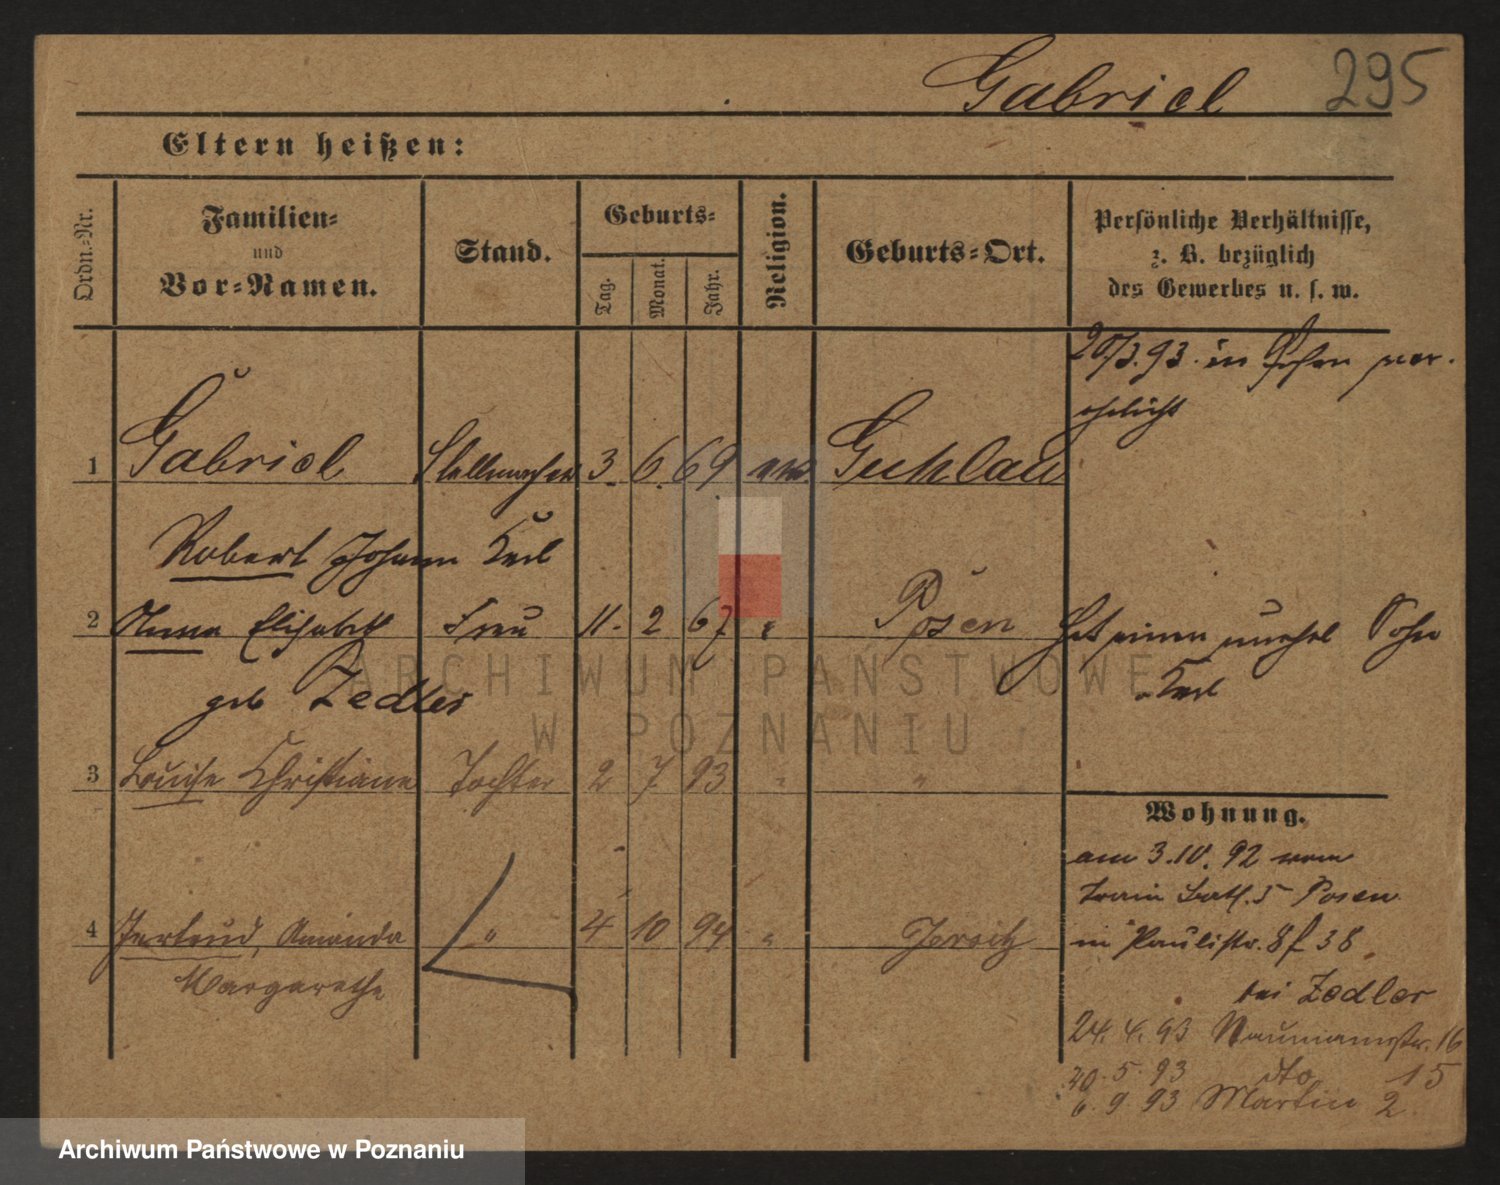 Gabriel 295
Eltern heißen:
Ordn.-Nr.
Familien-
und
Vor-Namen.
Stand.
Geburts-
Tag.
Monat.
Jahr.
Religion.
Geburts-Ort.
Persönliche Verhältnisse,
z. B. bezüglich
des Gewerbes u. s. w.
20/3.93. in Posen ver-
ehelicht
1 Gabriel Stellmacher 3. 6. 69 Guhlau
Robert Johann Karl
2 Anna Elisabeth Frau 11. 2 67 " Posen Hat einen unehel Sohn
Karl
geb Zedler
3 Louise Christiane Tochter 2 7 93 " "
Wohnung.
am 3.IV. 92 vom
Train Batl. 5 Posen
4 Gertrud, Amanda " 4 10 94 " Jersitz
in Paulistr. 8 f 38
Margarethe
bei Zedler
24. 4. 93 Naumannstr. 16
5. 93 dto 15
6. 9. 93 Martin 2
ARCHIWUM PAŃSTWOWE
W POZNANIU
Archiwum Państwowe w Poznaniu